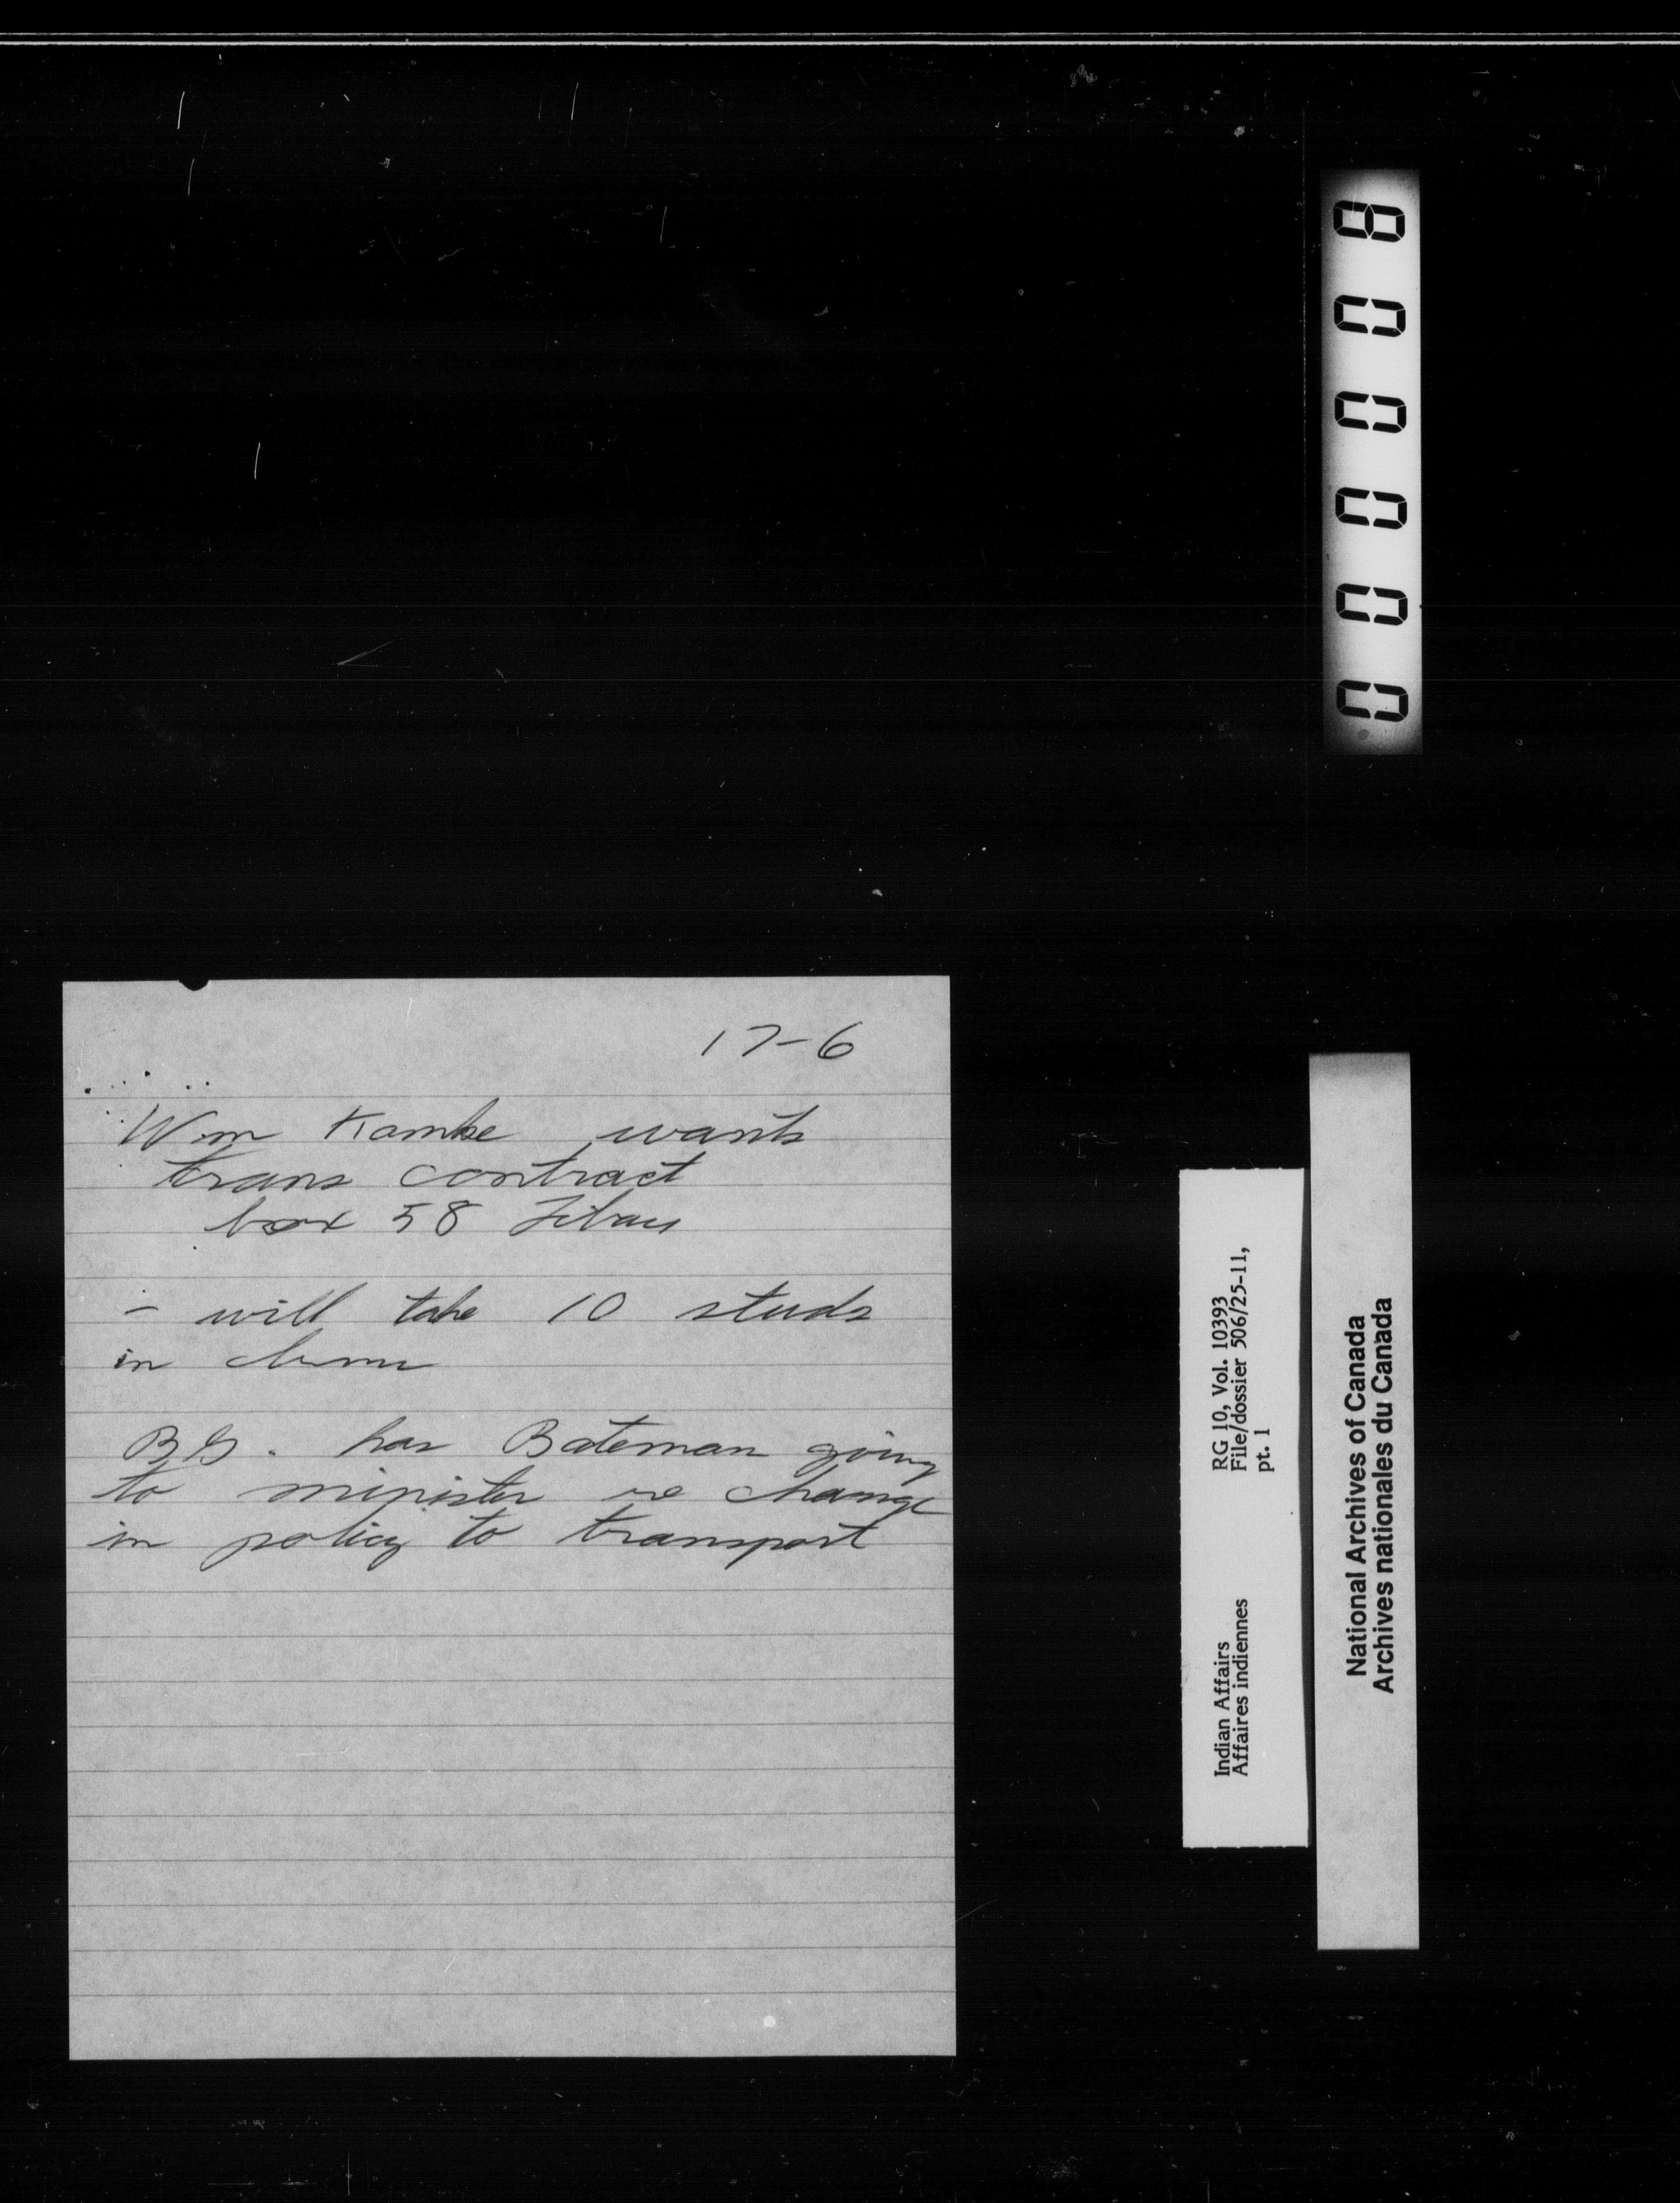 17-6
Wm Kamke wants
trans contract
box 58 Libau
- will take 10 studs
in
B.G. has Bateman going
to minister re change
in policy to transport
000008
RG 10, Vol. 10393
File/dossier 506/25-11,
pt. 1
Indian Affairs
Affaires indiennes
National Archives of Canada
Archives nationales du Canada